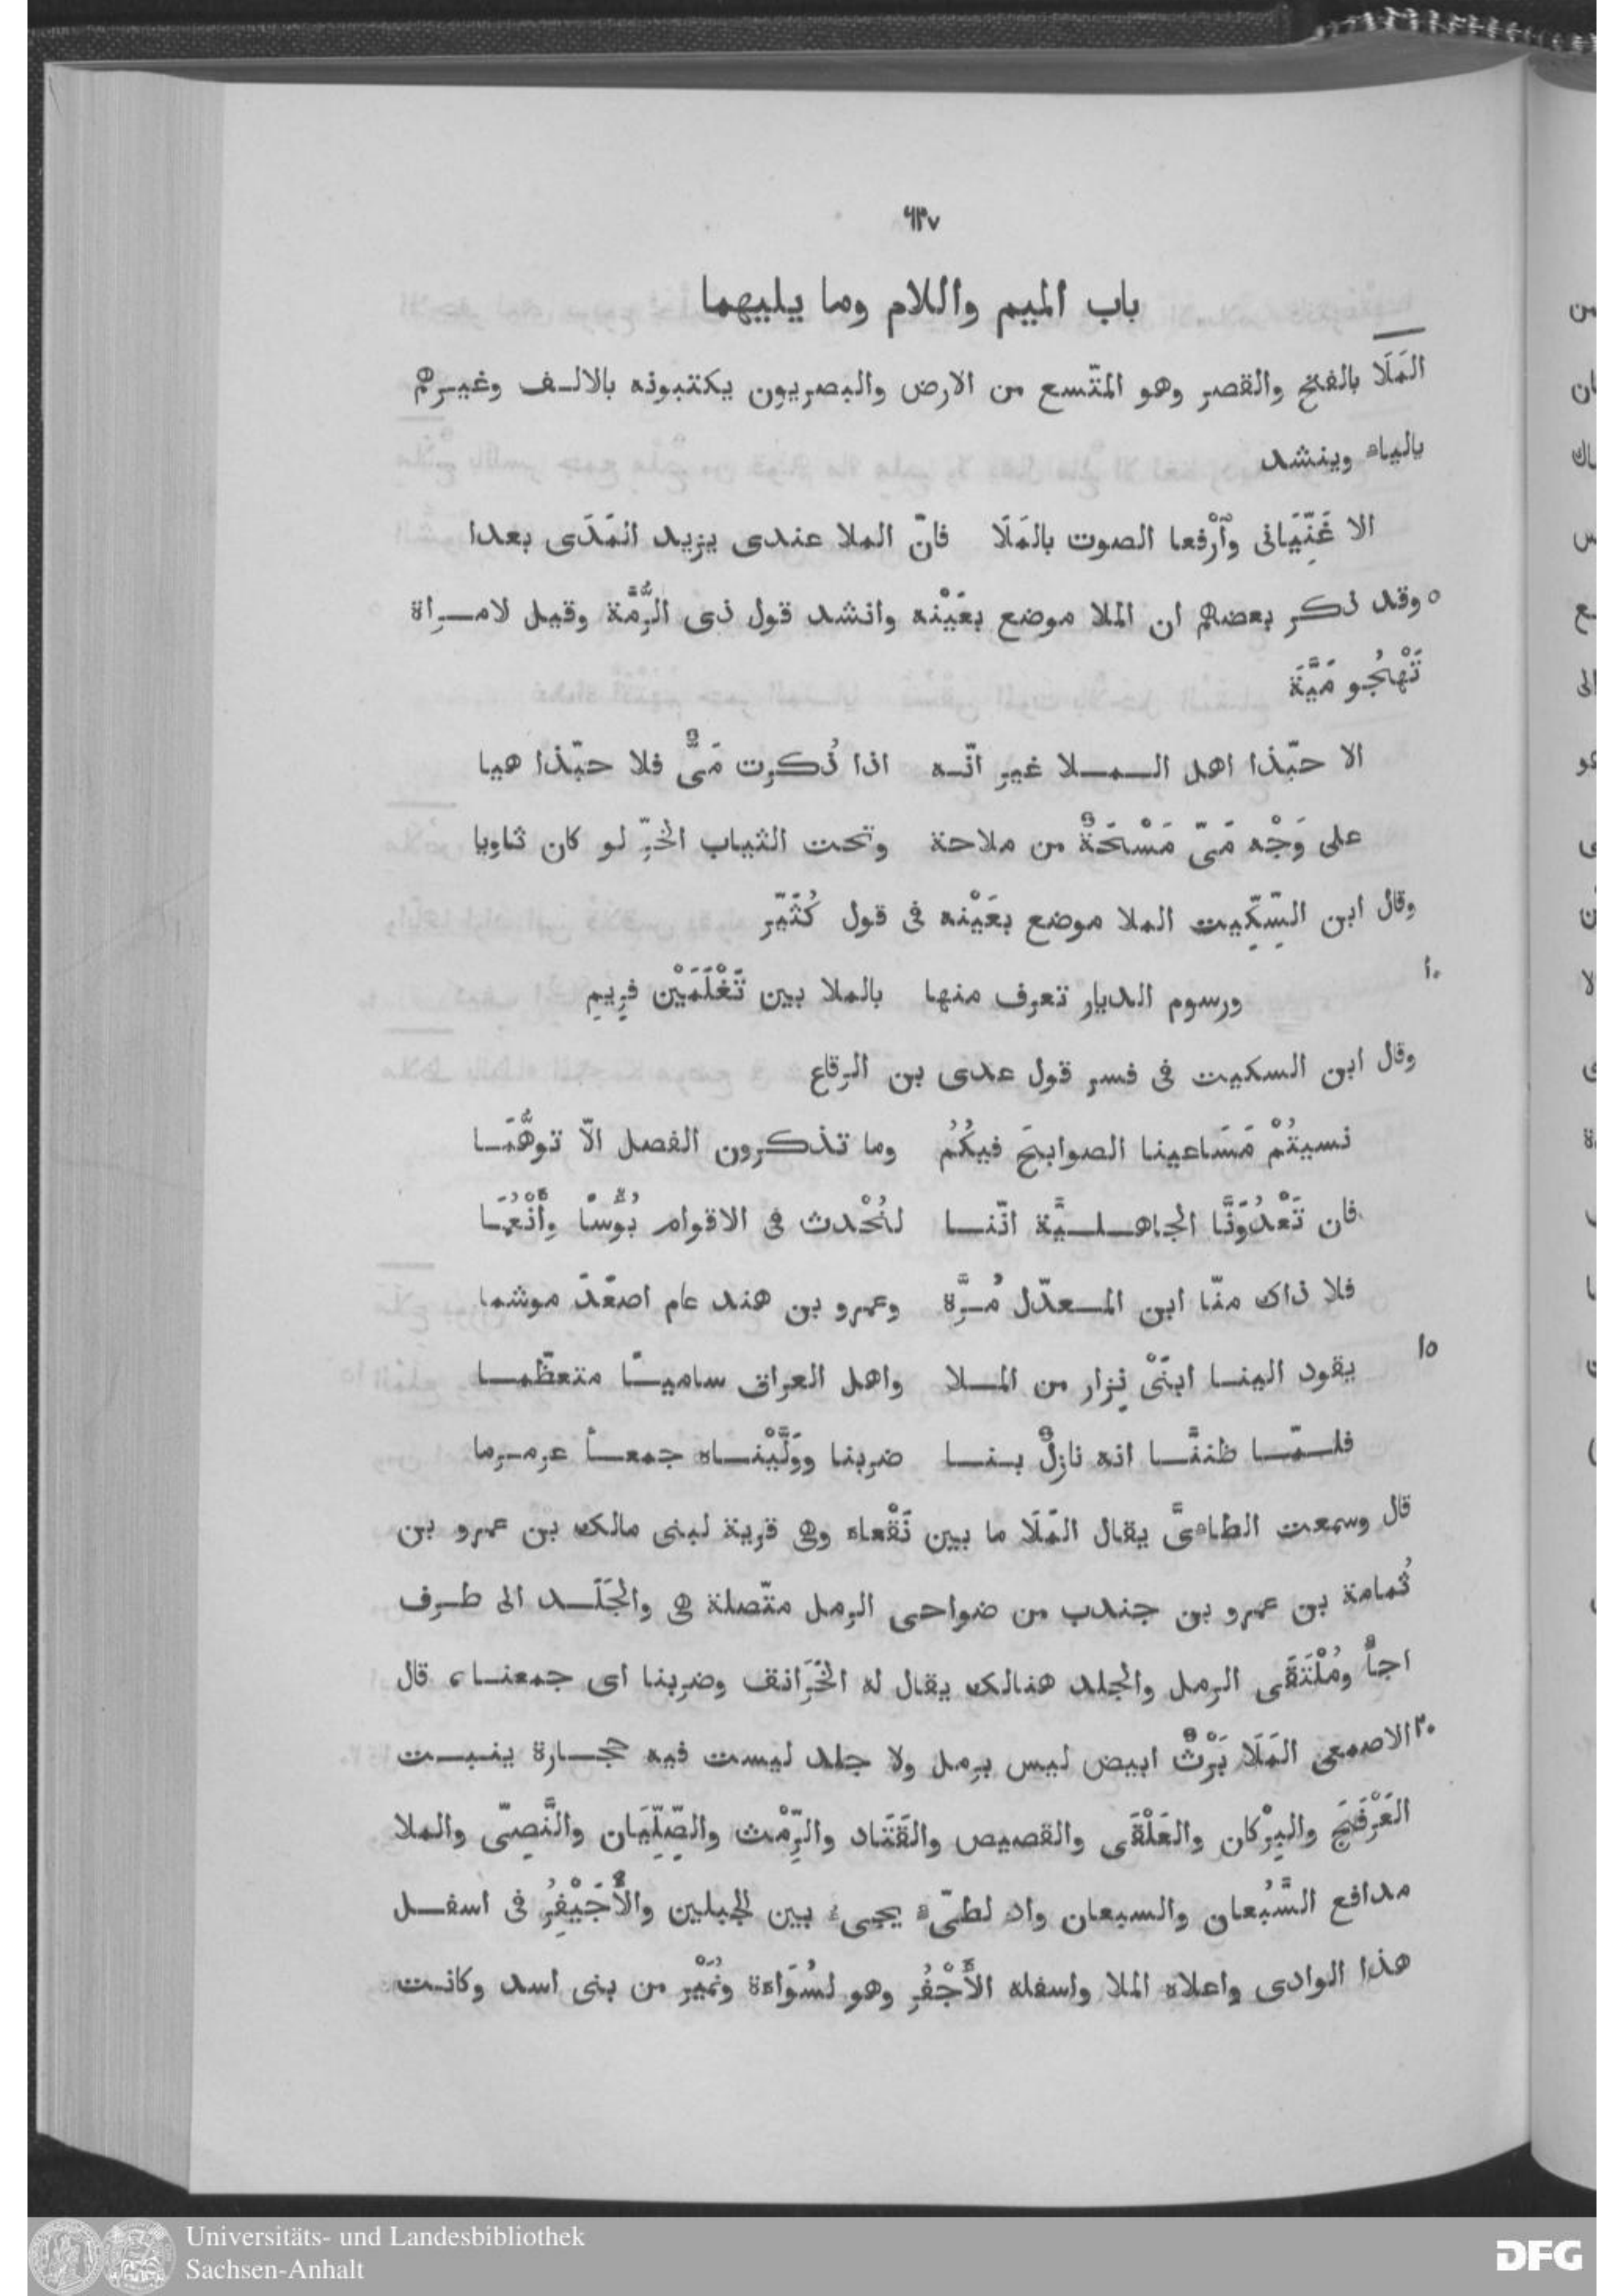 ٦٣٧
باب الميم واللام وما يليهما
المَلَا بالفتح والقصر وهو المتّسع من الارض والبصريون يكتبونه بالالـف وغيـرهم
بالياء وينشد
الا غَنِّيَانى وٱرْفعا الصوت بالمَلَا فانّ الملا عندى يزيد المَدَى بعدا
٥ وقد ذكر بعضهم ان الملا موضع بعَيْنه وانشد قول ذى الرُّمَّة وقيل لامـراة
تَهْجُو مَيَّةَ
الا حبّذا اهل المـلا غير انّـه اذا ذُكرت مَىٌّ فلا حبّذا هيا
على وَجْه مَىّ مَسْحَةٌ من ملاحة وتحت الثياب الخِزْى لو كان ثاويا
وقال ابن السِّكِّيت الملا موضع بعَيْنه فى قول كُثَيّر
١٠ ورسوم الديار تعرف منها بالملا بين تَغْلَمَيْن فرِيمِ
وقال ابن السكيت فى فسر قول عدى بن الرقاع
نسيتُمْ مَسَاعينا الصوابحَ فيكُمُ وما تذكرون الفصل الّا توهُّمَـا
فان تَعْدُوَنَّا الجاهـلـيَّة انّنـا لنُحْدث فى الاقوام بُوُسًا وأَنْعُمَا
فلا ذاك منّا ابن المـعدّل مُرَّة وعمرو بن هند عام اصعَدَ موشما
١٥ يقود الينـا ابنَىْ نِزار من المـلا واهل العراق ساميـًا متعظّمـا
فلـمّـا ظننَّـا انه نازلٌ بـنـا ضربنا ووَلَّيْنـاه جمعـاً عرمـرما
قال وسمعت الطاءىَّ يقال المَلَا ما بين نَقْعاء وهى قرية لبنى مالك بن عمرو بن
ثُمامة بن عمرو بن جندب من ضواحى الرمل متّصلة هى والجَلَـد الى طـرف
اجأٌ ومُلْتَقَى الرمل والجلد هنالك يقال له الخَرَانق وضربنا اى جمعنـا، قال
٢٠ الاصمعى المَلَا بَرْثٌ ابيض ليس برمل ولا جلد ليست فيه حجـارة ينبـت
العَرْفَجَ والبِرْكان والعَلْقَى والقصيص والقَتَاد والرِّمْث والصِّلِّيَان والنَّصِىّ والملا
مدافع السَّبُعان والسبعان واد لطيّء يجىء بين الجبلين والأُجَيْفِرُ فى اسفـل
هذا الوادى واعلاه الملا واسفله الأَجْفُر وهو لسُوَاءة ونُمَيْر من بنى اسد وكانـت
Universitäts- und Landesbibliothek
Sachsen-Anhalt
DFG